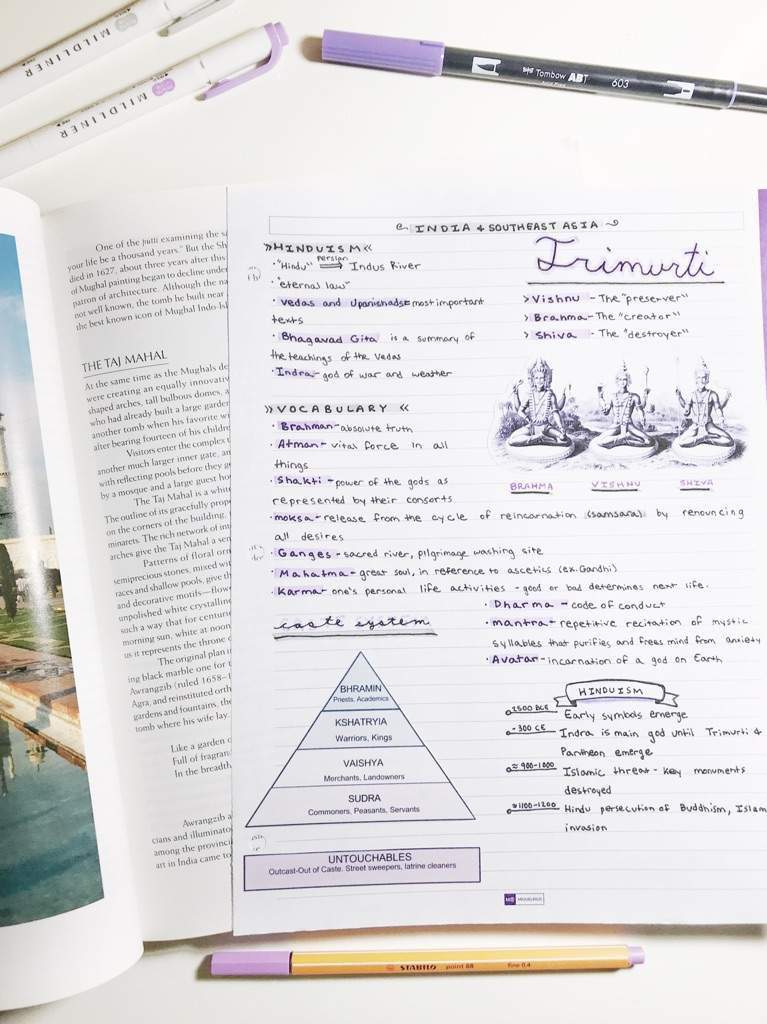 MILDLINER
MILDLINER
Tombow ABT
603
One of the putti examining the
your life be a thousand years." But the Sh
died in 1627, about three years after this
of Mughal painting began to decline under
patron of architecture. Although the
not well known, the tomb he built near
the best known icon of Mughal Indo-Isl
THE TAJ MAHAL
At the same time as the Mughals
were creating an equally innovativ
shaped arches, tall bulbous domes,
who had already built a large garden
another tomb when his favorite
after bearing fourteen of his
Visitors enter the complex
another much larger inner gate,
with reflecting pools before they
by a mosque and a large guest
The Taj Mahal is a
The outline of its gracefully
on the corners of the building.
minarets. The rich network of
arches give the Taj Mahal a
Patterns of floral
semiprecious stones, mixed
races and shallow pools, give
and decorative motifs—
unpolished white crystalline
such a way that for
morning sun, white at noon
us it represents the throne
The original plan
ing black marble one for
Awrangzib (ruled 1658–
Agra, and reinstituted
gardens and fountains,
tomb where his wife lay.
Like a garden
Full of
In the
Awrangzib
cians and
among the
art in India came to
INDIA & SOUTHEAST ASIA
»HINDUISM«
• "Hindu" persian ⇒ Indus River
• "eternal law"
• Vedas and Upanishads: most important
texts
• Bhagavad Gita is a summary of
the teachings of the Vedas
• Indra - god of war and weather
Trimurti
> Vishnu - The "preserver"
> Brahma - The "creator"
> Shiva - The "destroyer"
BRAHMA VISHNU SHIVA
»VOCABULARY«
• Brahman - absolute truth
• Atman - vital force in all
things
• Shakti - power of the gods as
represented by their consorts
• moksa - release from the cycle of reincarnation (samsara) by renouncing
all desires
• Ganges - sacred river, pilgrimage washing site
• Mahatma - great soul, in reference to ascetics (ex. Gandhi)
• Karma - one's personal life activities - good or bad determines next life.
• Dharma - code of conduct
• mantra - repetitive recitation of mystic
syllables that purifies and frees mind from anxiety
• Avatar - incarnation of a god on Earth
caste system
BHRAMIN
Priests, Academics
KSHATRYIA
Warriors, Kings
VAISHYA
Merchants, Landowners
SUDRA
Commoners, Peasants, Servants
UNTOUCHABLES
Outcast-Out of Caste. Street sweepers, latrine cleaners
HINDUISM
2500 BCE Early symbols emerge
~300 CE Indra is main god until Trimurti &
Pantheon emerge
≈ 900-1000 Islamic threat - key monuments
destroyed
≈1100-1200 Hindu persecution of Buddhism, Islam
invasion
STABILO point 88 fine 0.4